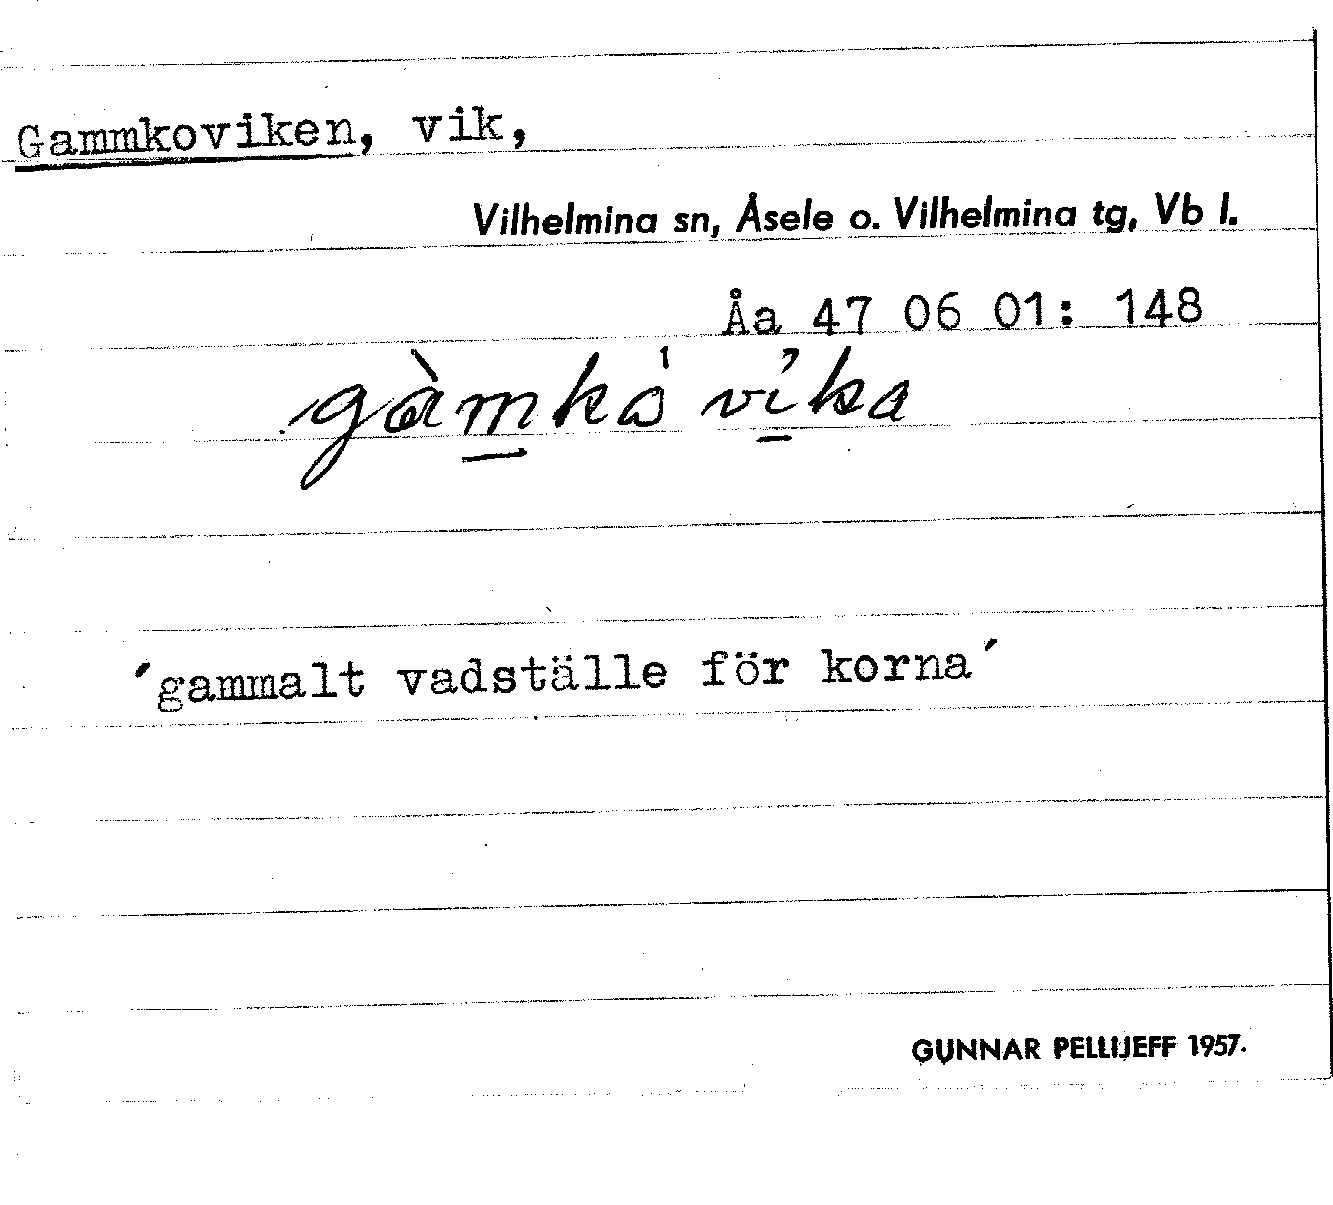 Gammkoviken, vik,
Vilhelmina sn, Åsele o. Vilhelmina tg, Vb l.
Åa 47 06 01: 148
gàmkå vika
'gammalt vadställe för korna'
GUNNAR PELLIJEFF 1957.